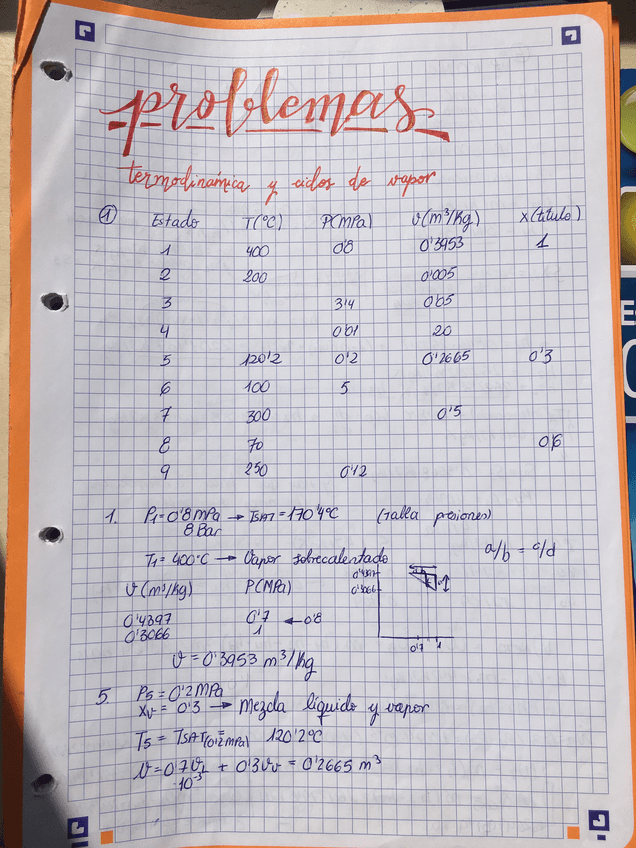 problemas
termodinámica y ciclos de vapor
① Estado T(°C) P(MPa) v(m³/Kg) x(título)
1 400 0'8 0'3953 1
2 200 0'005
3 3'4 0'05
4 0'01 20
5 120'2 0'2 0'2665 0'3
6 100 5
7 300 0'5
8 70 0'6
9 250 0'12
1. P₁=0'8MPa → TSAT=170'4°C (Talla presiones)
8 Bar
T₁=400°C → Vapor sobrecalentado a/b = c/d
v(m³/Kg) P(MPa)
0'4397
0'3066
0'4397 0'7 ← 0'8
0'3066 1
0'7 1
v = 0'3953 m³/Kg
5. P₅=0'2MPa
Xv = 0'3 → Mezcla líquido y vapor
T₅ = TSAT(0'2MPa) = 120'2°C
v = 0'7 vL + 0'3 vv = 0'2665 m³
10⁻³
E